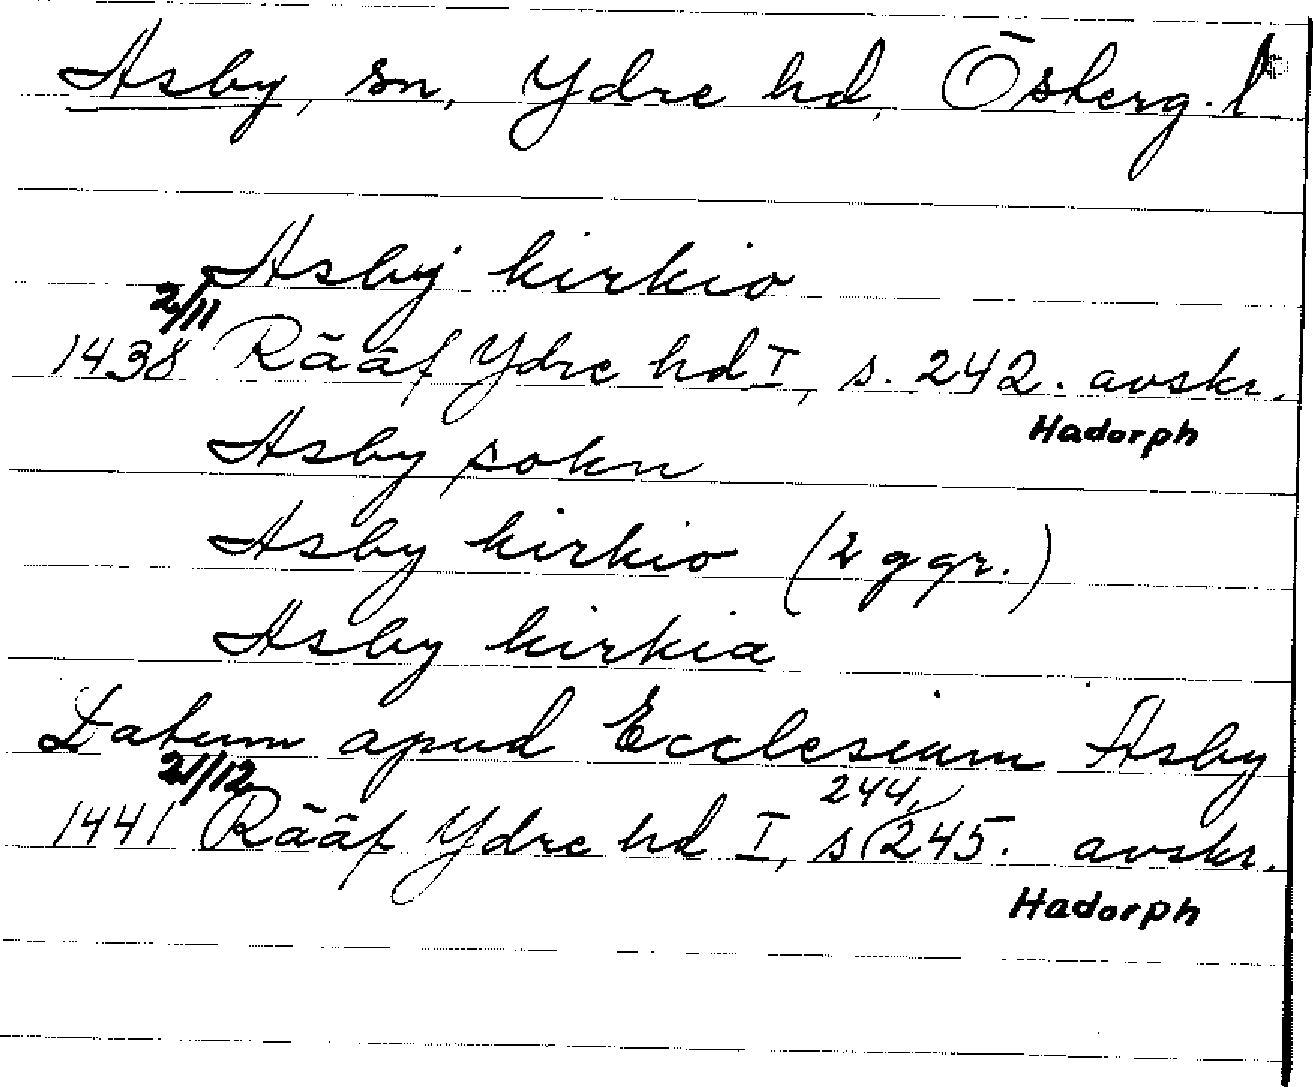 Asby, sn, Ydre hd, Österg. l
Asbÿ kirkio
2/11
1438 Rääf Ydre hd I, s. 242. avskr.
Hadorph
Asby sokn
Asby kirkio (2 ggr.)
Asby kirkia
Datum apud Ecclesiam Asby
21/12
1441 Rääf Ydre hd I, s 244, 245. avskr.
Hadorph